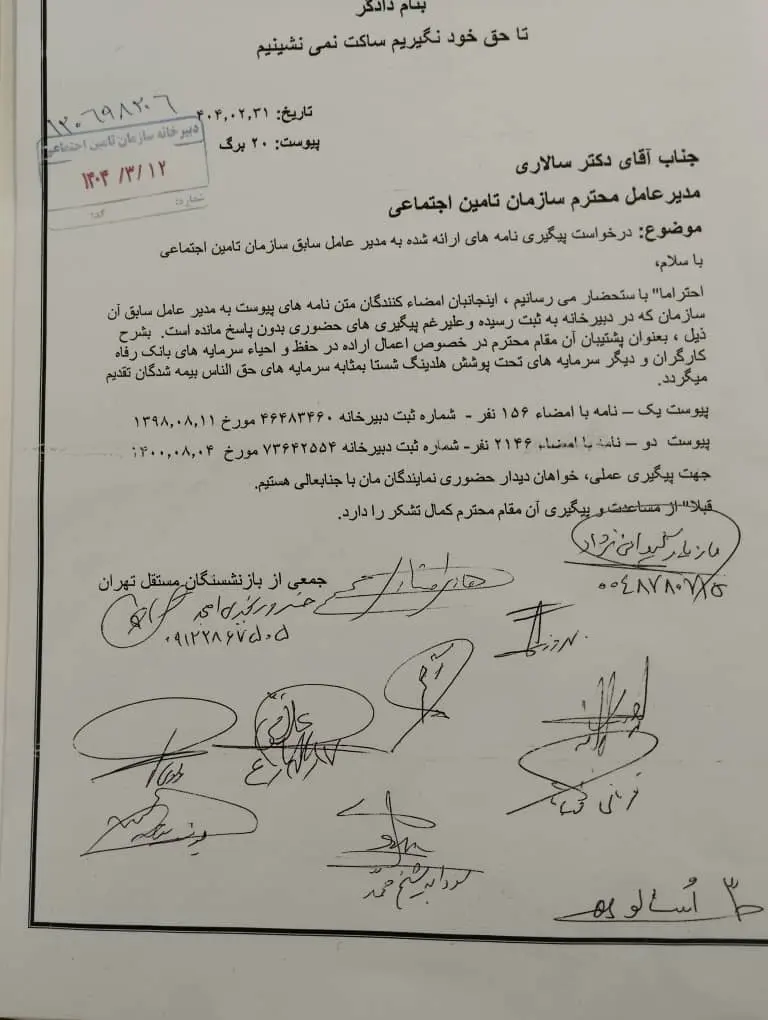 بنام دادگر
تا حق خود نگیریم ساکت نمی نشینیم
تاریخ: ۴۰۴,۰۲,۳۱
پیوست: ۲۰ برگ
دبیرخانه سازمان تامین اجتماعی
۱۴۰۴ /۳/ ۱۲
شماره:
کد:
جناب آقای دکتر سالاری
مدیرعامل محترم سازمان تامین اجتماعی
موضوع: درخواست پیگیری نامه های ارائه شده به مدیر عامل سابق سازمان تامین اجتماعی
با سلام،
احتراما" با ستحضار می رسانیم ، اینجانبان امضاء کنندگان متن نامه های پیوست به مدیر عامل سابق آن
سازمان که در دبیرخانه به ثبت رسیده وعلیرغم پیگیری های حضوری بدون پاسخ مانده است. بشرح
ذیل ، بعنوان پشتیبان آن مقام محترم در خصوص اعمال اراده در حفظ و احیاء سرمایه های بانک رفاه
کارگران و دیگر سرمایه های تحت پوشش هلدینگ شستا بمثابه سرمایه های حق الناس بیمه شدگان تقدیم
میگردد.
پیوست یک – نامه با امضاء ۱۵۶ نفر - شماره ثبت دبیرخانه ۴۶۴۸۳۴۶۰ مورخ ۱۳۹۸,۰۸,۱۱
پیوست دو – نامه با امضاء ۲۱۴۶ نفر- شماره ثبت دبیرخانه ۷۳۶۴۲۵۵۴ مورخ ۱۴۰۰,۰۸,۰۴
جهت پیگیری عملی، خواهان دیدار حضوری نمایندگان مان با جنابعالی هستیم.
قبلا" از مساعدت و پیگیری آن مقام محترم کمال تشکر را دارد.
جمعی از بازنشستگان مستقل تهران